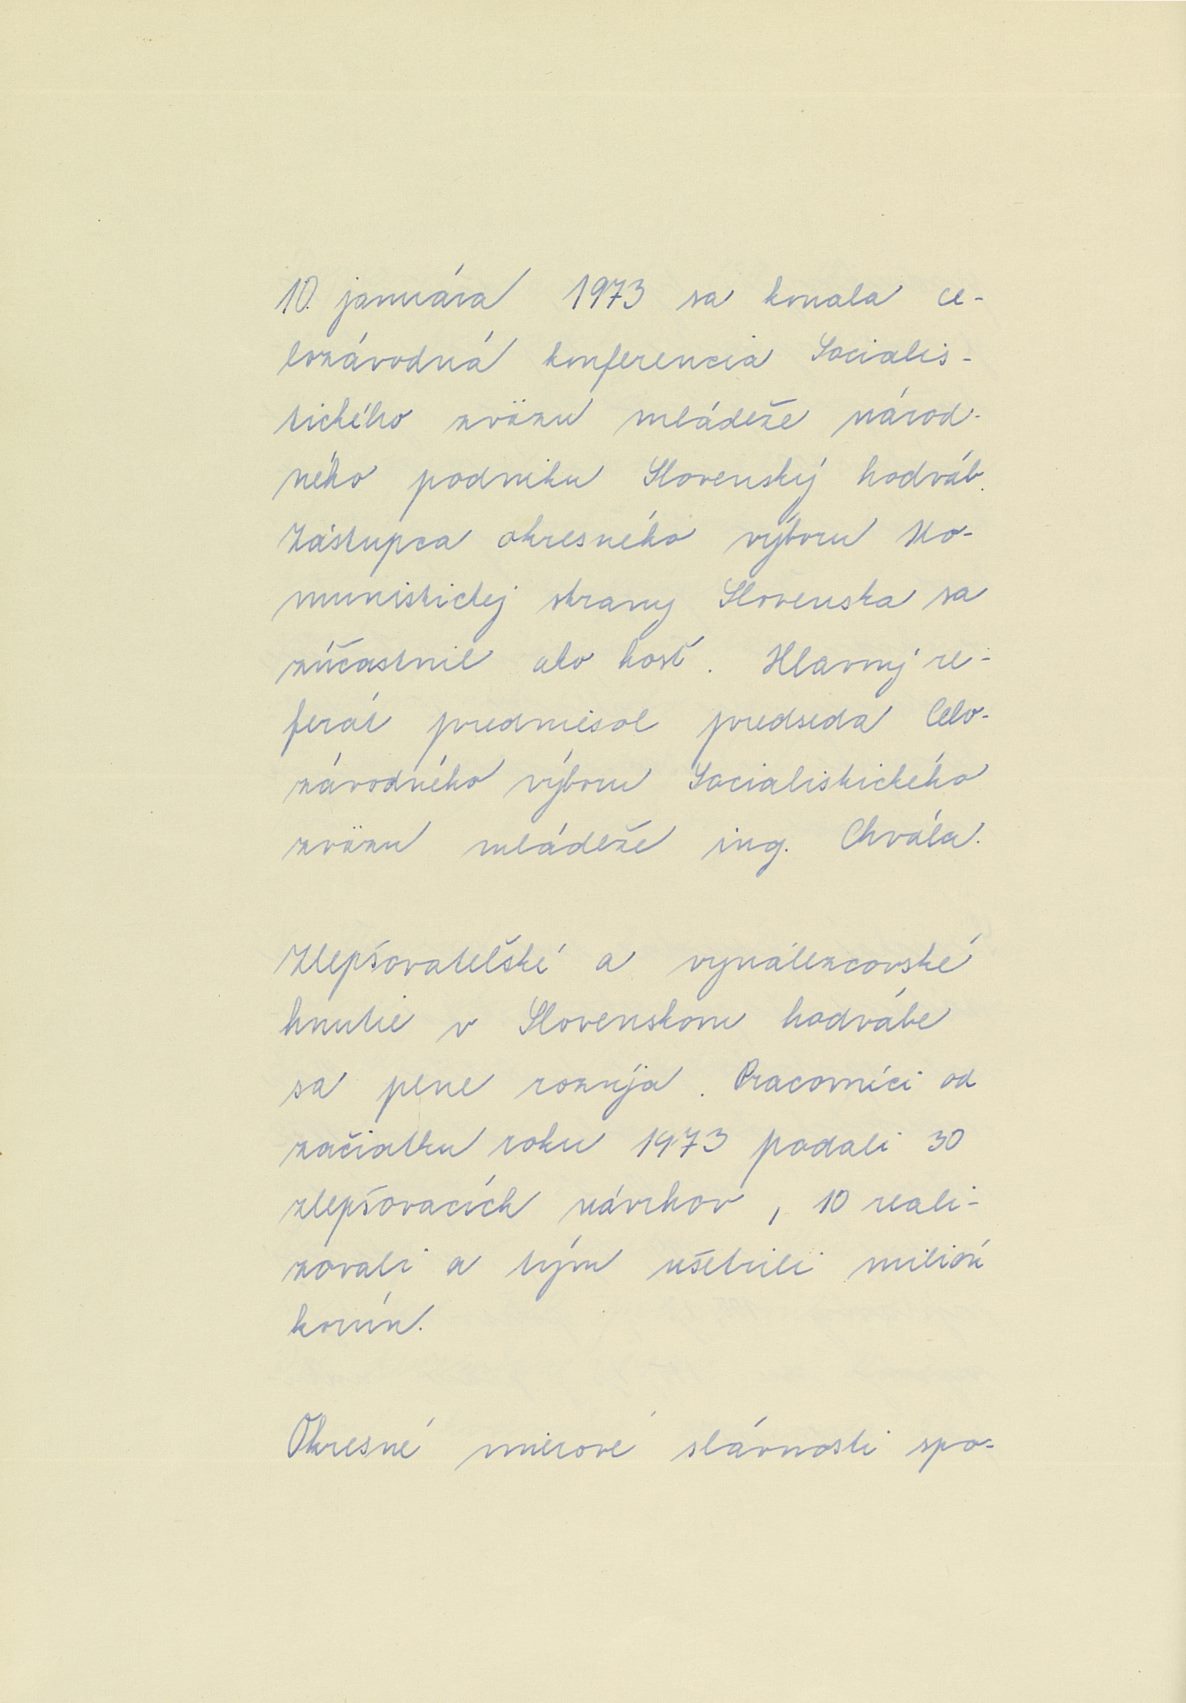 10. januára 1973 sa konala ce-
lozávodná konferencia Socialis-
tického zväzu mládeže národ-
ného podniku Slovenský hodváb.
Zástupca okresného výboru Ko-
munistickej strany Slovenska sa
zúčastnil ako hosť. Hlavný re-
ferát predniesol predseda Celo-
závodného výboru Socialistického
zväzu mládeže ing. Chvála.
Zlepšovateľské a vynálezcovské
hnutie v Slovenskom hodvábe
sa plne rozvíja. Pracovníci od
začiatku roku 1973 podali 30
zlepšovacích návrhov, 10 reali-
zovali a tým ušetrili milión
korún.
Okresné mierové slávnosti spo-